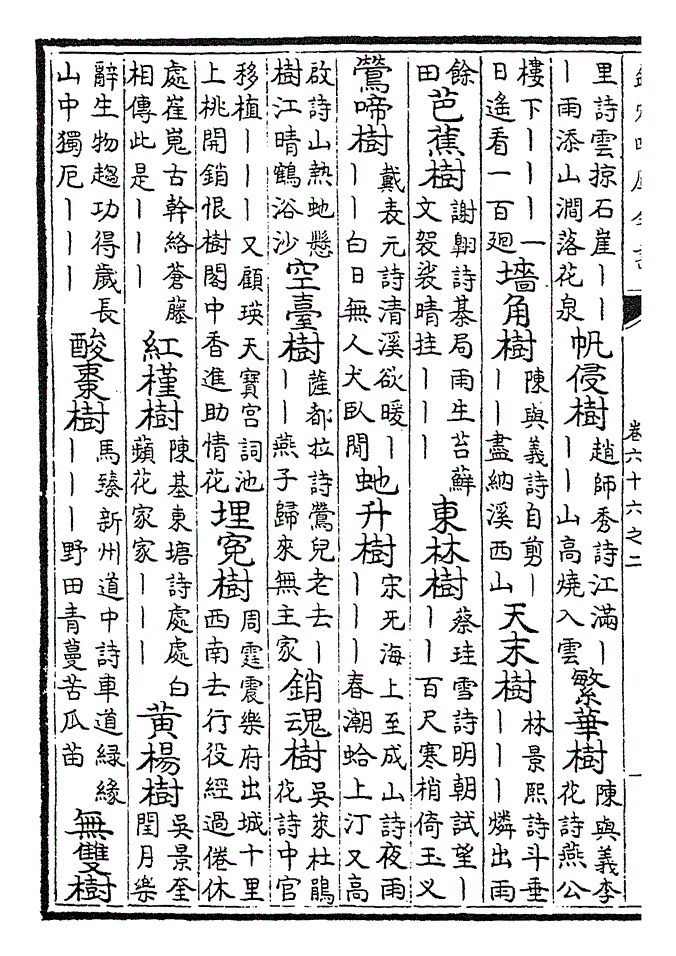 欽定四庫全書 卷六十六之二 一
里詩雲掠石崖丨丨
丨雨添山澗落花泉
帆侵樹
趙師秀詩江滿丨
丨丨山高燒入雲
繁華樹
陳與義李
花詩燕公
樓下丨丨丨一
日遙看一百廻
墻角樹
陳與義詩自剪丨
丨丨盡納溪西山
天末樹
林景熙詩斗垂
丨丨丨燐出雨
餘
田
芭蕉樹
謝翺詩棊局雨生苔蘚
文袈裟晴挂丨丨丨
東林樹
蔡珪雪詩明朝試望丨
丨丨百尺寒梢倚玉义
鶯啼樹
戴表元詩清溪欲暖丨
丨丨白日無人犬臥閒
虵升樹
宋旡海上至成山詩夜雨
丨丨丨春潮蛤上汀又高
啟詩山熱虵懸
樹江晴鶴浴沙
空臺樹
薩都拉詩鶯兒老去丨
丨丨燕子歸來無主家
銷魂樹
吳萊杜鵑
花詩中官
移植丨丨丨又顧瑛天寶宮詞池
上桃開銷恨樹閣中香進助情花
埋寃樹
周霆震樂府出城十里
西南去行役經過倦休
處崔嵬古幹絡蒼藤
相傳此是丨丨丨
紅槿樹
陳基東塘詩處處白
蘋花家家丨丨丨
黃楊樹
吳景奎
閏月樂
辭生物趨功得歲長
山中獨厄丨丨丨
酸棗樹
馬臻新州道中詩車道緑緣
丨丨丨野田青蔓苦瓜苗
無雙樹